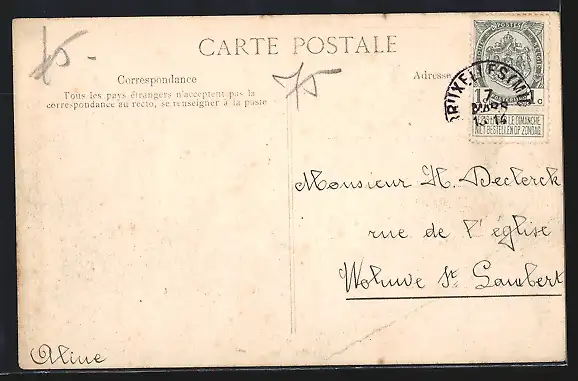 CARTE POSTALE
Correspondance
Tous les pays étrangers n'acceptent pas la
correspondance au recto, se renseigner à la poste
Adresse
75
75
POSTES
BRUXELLES (MIDI
17
MARS
1 C
NE PAS LIVRER LE DIMANCHE
NIET BESTELLEN OP ZONDAG
Monsieur H. Declerck
rue de l'église
Woluwe St. Lambert
Aline